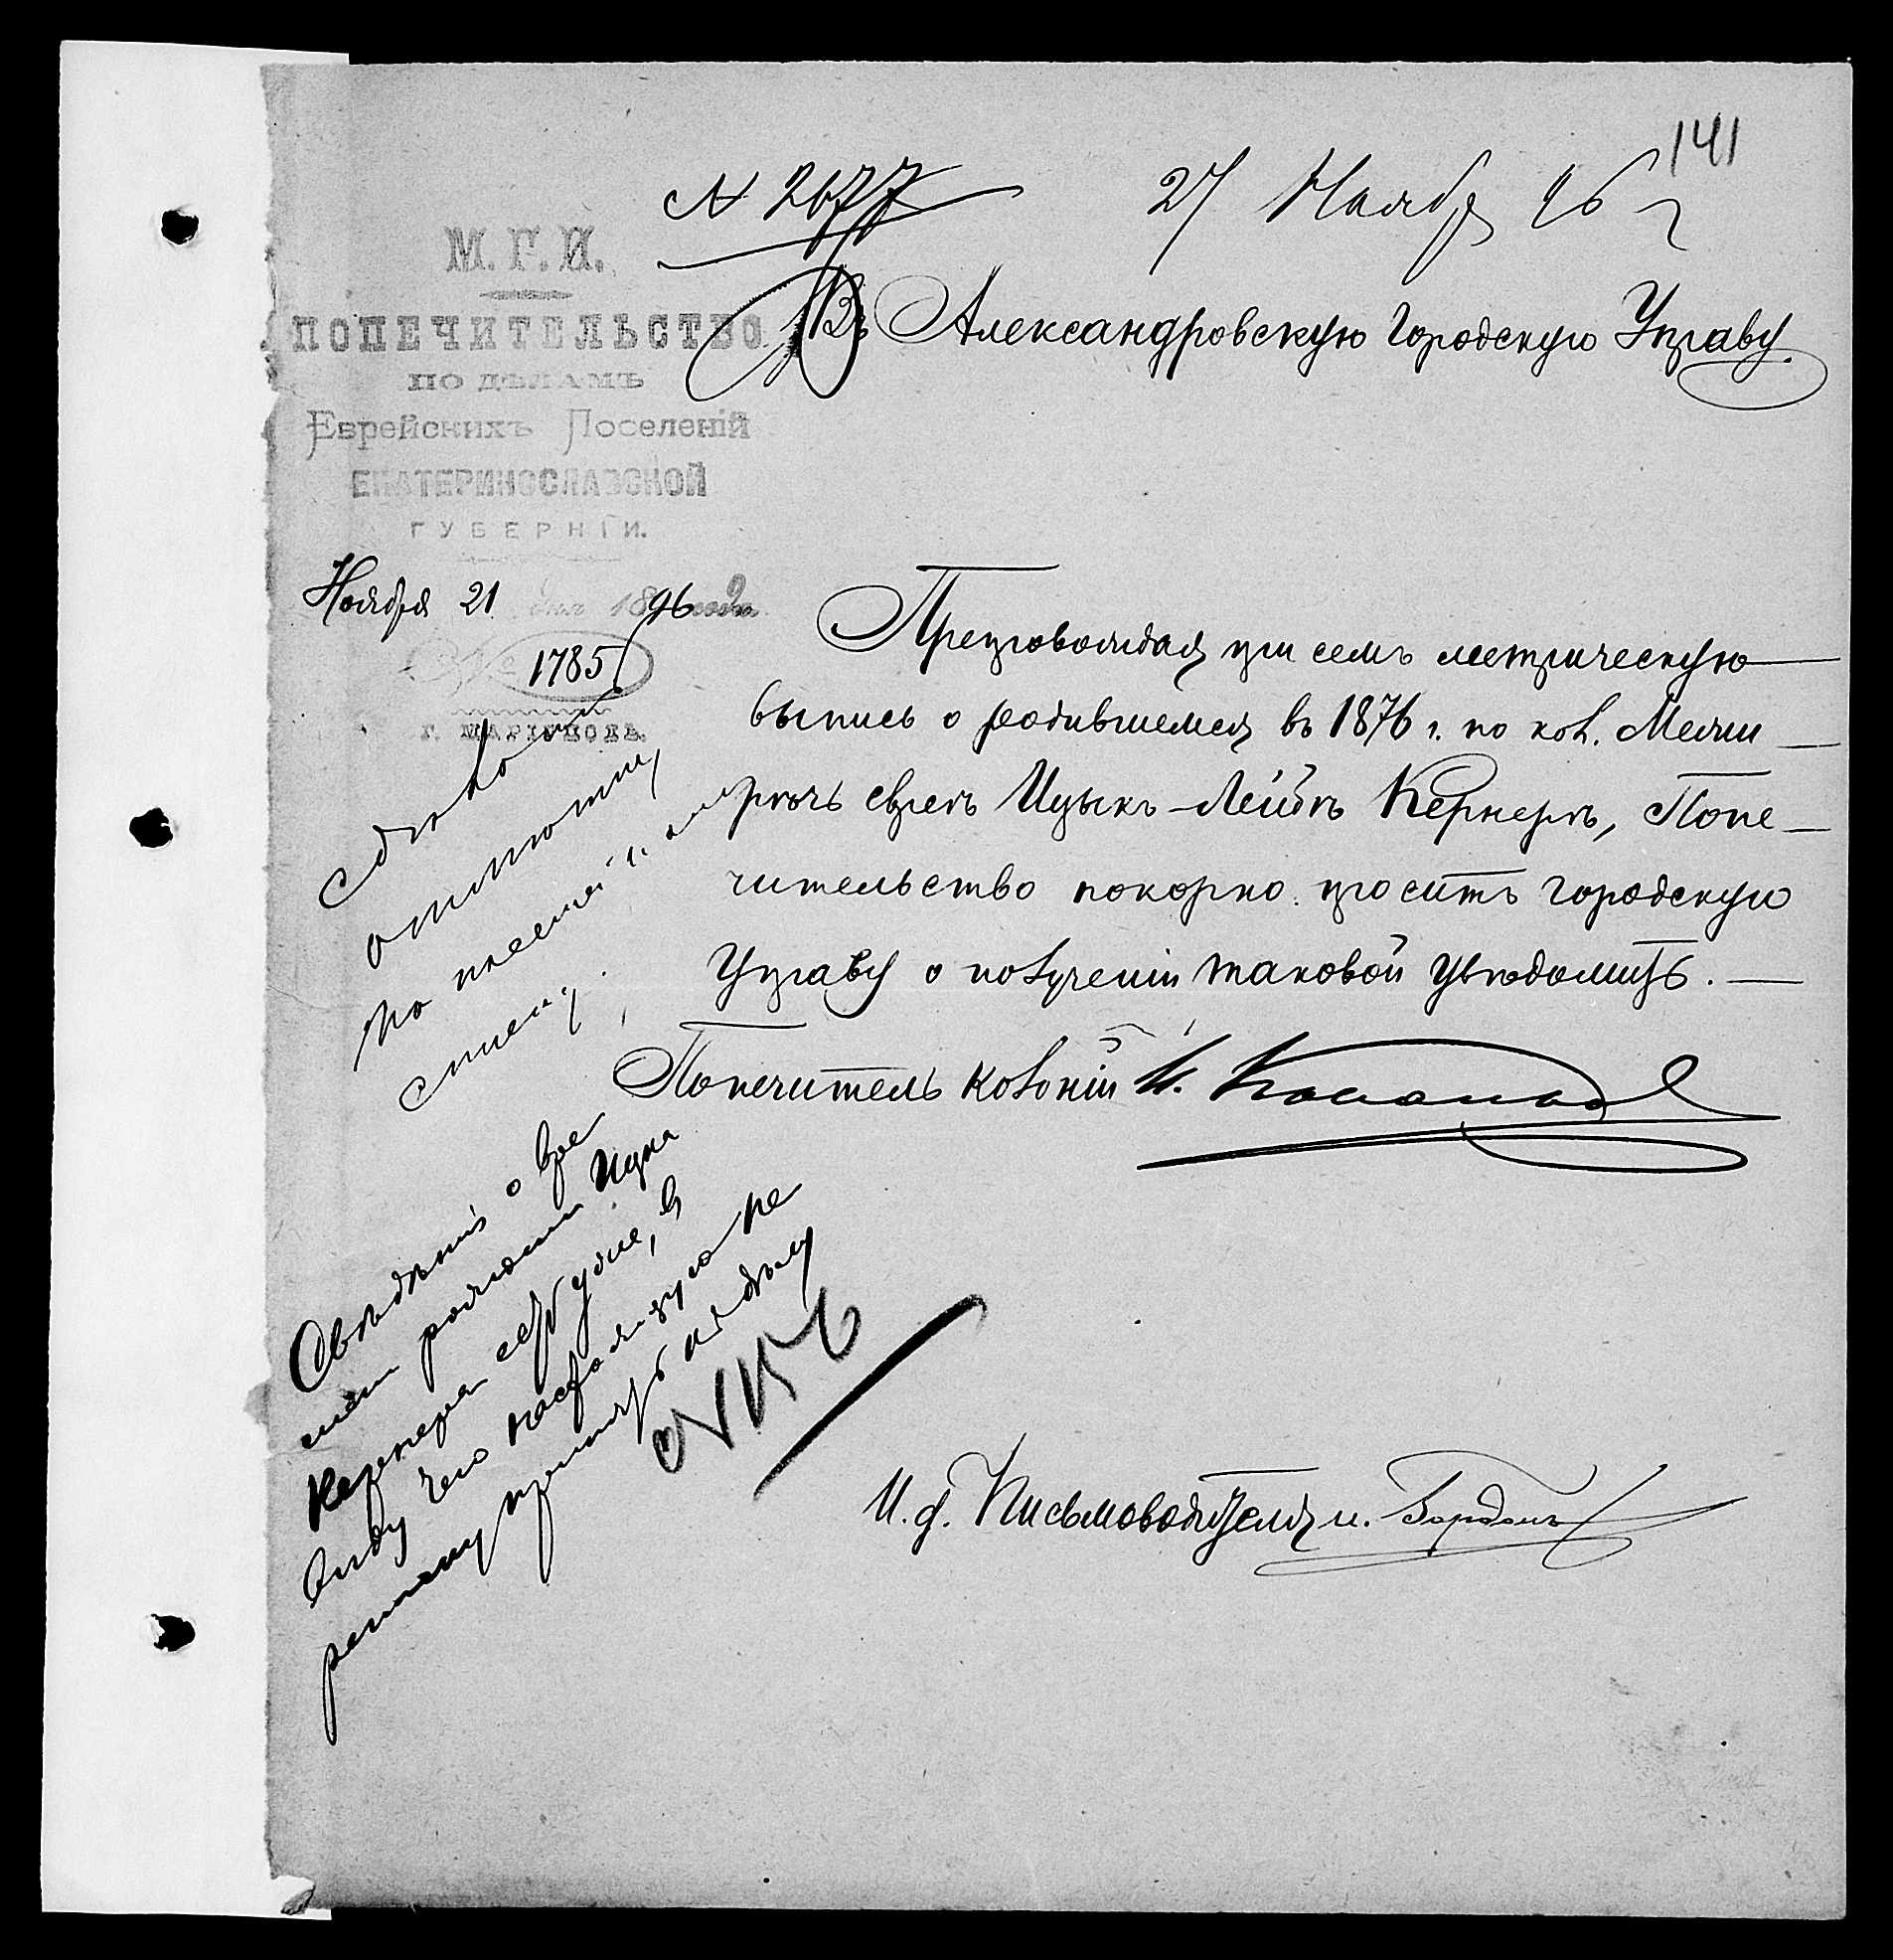 141
№ 2677
27 Ноября 96 г
М. Г. И.
ПОПЕЧИТЕЛЬСТВО
ПО ДѢЛАМЪ
Еврейскихъ Поселеній
ЕКАТЕРИНОСЛАВСКОЙ
ГУБЕРНІИ.
Ноября 21 дня 1896 года
№ 1785
Г. МАРІУПОЛЬ.
Въ Александровскую Городскую Управу.
Препровождая при семъ метрическую
выпись о родившемся въ 1876 г. по кол. Межи
рѣчь евреѣ Ицыкѣ-Лейбѣ Кернерѣ, Попе-
чительство покорно проситъ городскую
Управу о полученіи таковой увѣдомить.
Попечитель колоній И.
И. д. Письмоводителя и. Гордонъ
отмѣтку
по
списку
Свѣдѣнія о вре
мени рожденія Ицка
Кернера
виду чего настоящую пе
реписку къ дѣлу
№